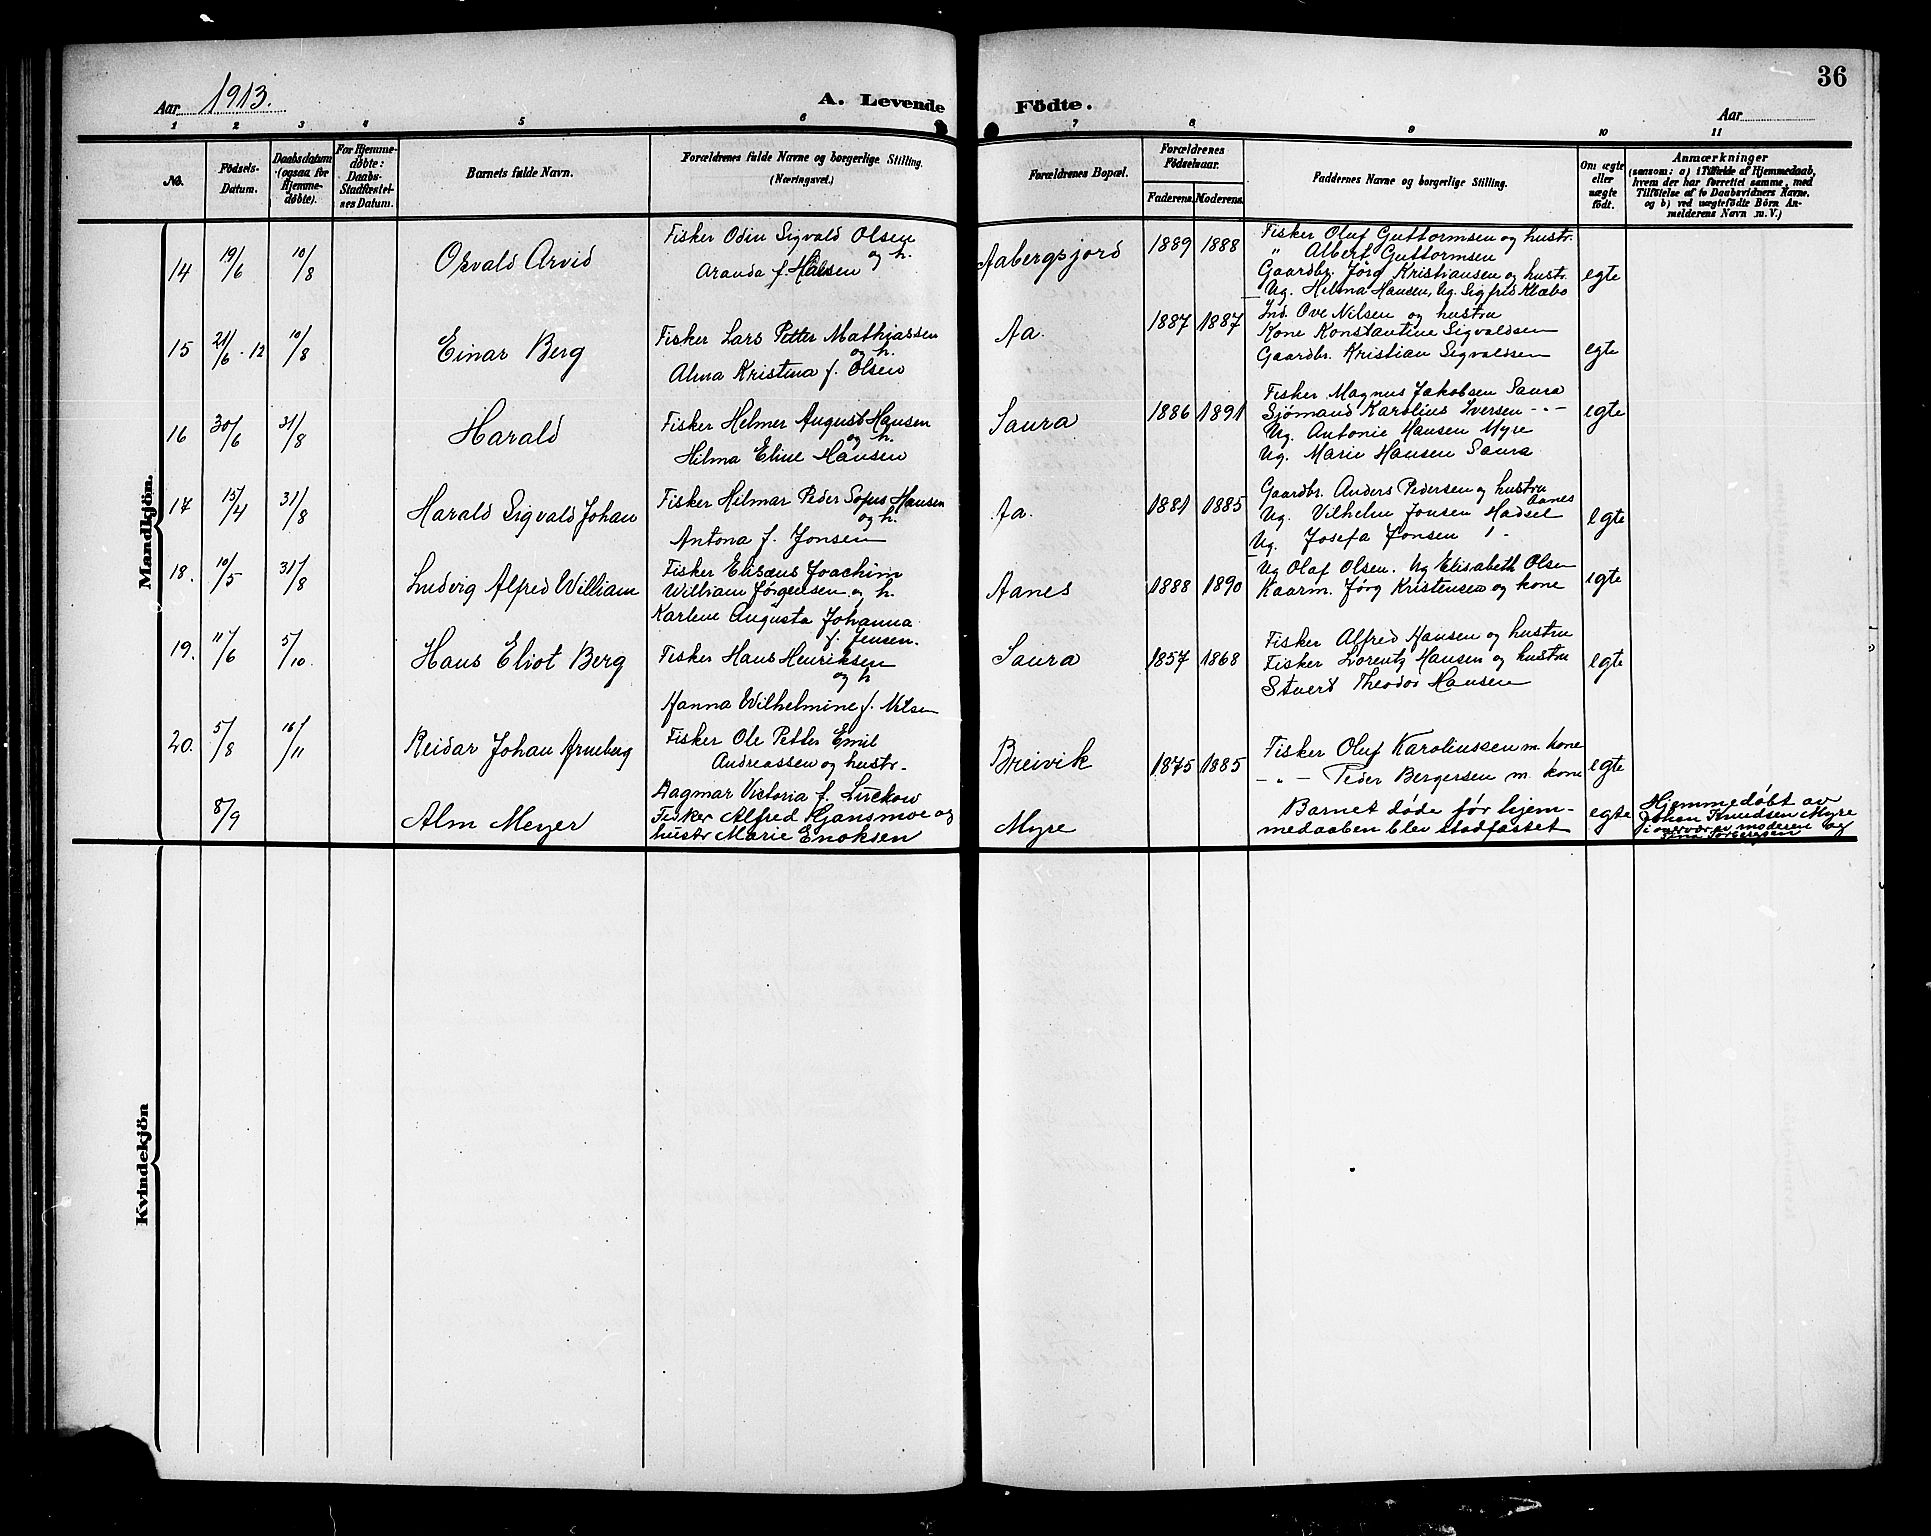 36
Aar 1913.
A. Levende Födte.
Aar
1 2 3 4 5 6 7 8 9 10 11
No.
Födsels-
Datum.
Daabsdatum
(ogsaa for
Hjemme-
døbte).
For Hjemme-
døbte:
Daabs-
Stadfæstel-
ses Datum.
Barnets fulde Navn.
Forældrenes fulde Navne og borgerlige Stilling.
(Næringsvei.)
Forældrenes Bopæl.
Forældrenes
Födselsaar.
Faderens. Moderens.
Faddernes Navne og borgerlige Stilling.
Om ægte
eller
uægte
født.
Anmærkninger
(saasom: a) i Tilfælde af Hjemmedaab,
hvem der har forrettet samme, med
Tilföielse af to Daabsvidners Navne.
og b) ved uægtefödte Börn An-
melderens Navn m. V.)
Mandkjön.
14
19/6
10/8
Osvald Arvid
Fisker Odin Sigvald Olsen
og h.
Aranda f. Hansen
Aabergsjord
1889 1888
Fisker Oluf Guttormsen og hustr.
" Albert Guttormsen
Gaardbr. Jörg Kristiansen og hustr.
Ug. Helma Hansen, Ug. Sigfrid Klæbo
egte
15
21/6 - 12
10/8
Einar Berg
Fisker Lars Petter Mathiassen
og h.
Alma Kristina f. Olsen
Aa.
1887 1887
Ind. Ove Nilsen og hustru
Kone Konstantine Sigvaldsen
Gaardbr. Kristian Sigvaldsen
egte
16
30/6
31/8
Harald
Fisker Helmer August Hansen
og h.
Hilma Eline Hansen
Saura
1886 1891
Fisker Magnus Jakobsen Saura
Sjömand Karolius Iversen -"-
Ug. Antonie Hansen Myre
Ug. Marie Hansen Saura
egte
17
15/4
31/8
Harald Sigvald Johan
Fisker Hilmar Peder Sofus Hansen
og h.
Antona f. Jonsen
Aa.
1881 1885
Gaardbr. Anders Pedersen og hustru
Aanes
Ug. Vilhelm Jonsen Hadsel
Ug. Josefa Jonsen
egte
18.
10/5
31/8
Ludvig Alfred William
Fisker Elisæus Joachim
William Jørgensen og h.
Karlene Augusta Johanna
f. Jensen.
Aanes
1888 1890
Ug Olaf Olsen. Ug Elisabeth Olsen
Kaarm. Jörg Kristensen og kone
egte
19.
11/6
5/10.
Hans Eliot Berg
Fisker Hans Henriksen
og h
Hanna Wilhelmine f. Nilsen
Saura
1857 1868
Fisker Alfred Hansen og hustru
Fisker Lorentz Hansen og hustru
Stuert Theodor Hansen
egte
20.
5/8
16/11
Reidar Johan Arneberg
Fisker Ole Petter Emil
Andreassen og hustr.
Dagmar Victoria f. Lückow
Breivik
1875 1885
Fisker Oluf Karoliussen m. kone
-"- Peder Bergersen m. kone
egte
8/9
Alm Meyer
Fisker Alfred Kjansmoe og
hustr Marie Enoksen
Myre
Barnet døde før hjem-
medaaben blev stadfæstet
egte
Hjemmedøbt av
Johan Knudsen Myre
i overvær av moderen og
Kvindekjön